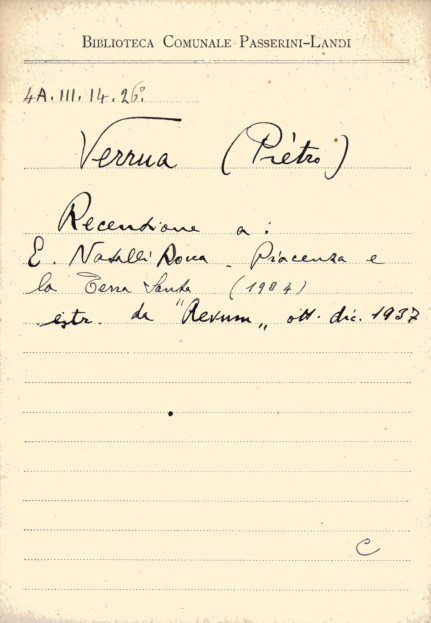 BIBLIOTECA COMUNALE PASSERINI-LANDI
4A.III.14.26°
Verrua (Pietro)
Recensione a :
E. Nasalli Rocca - Piacenza e
la Terra Santa (1934)
estr. da "Aevum„ ott. dic. 1937
C